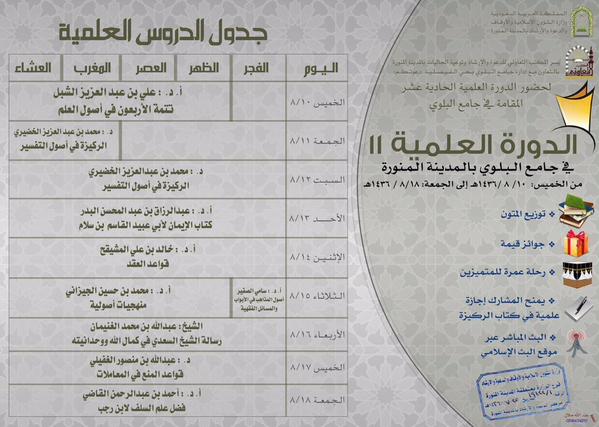 المملكة العربية السعودية
وزارة الشؤون الإسلامية والأوقاف
والدعوة والإرشاد بالمدينة المنورة
يسر المكتب التعاوني للدعوة والإرشاد وتوعية الجاليات بالمدينة المنورة
بالتعاون مع إدارة جامع البلوي بحي الفيصلية دعوتكم:
لحضور الدورة العلمية الحادية عشر
المقامة في جامع البلوي
الدورة العلمية 11
في جامع البلوي بالمدينة المنورة
من الخميس: ١٠/ ٨ /١٤٣٦هـ إلى الجمعة: ٨/١٨/ ١٤٣٦هـ
توزيع المتون
جوائز قيمة
رحلة عمرة للمتميزين
يمنح المشارك إجازة
علمية في كتاب الركيزة
البث المباشر عبر
موقع البث الإسلامي
جدول الدروس العلمية
اليوم الفجر الظهر العصر المغرب العشاء
الخميس ٨/١٠
أ. د. : علي بن عبد العزيز الشبل
تتمة الأربعون في أصول العلم
الجمعة ٨/١١
د : محمد بن عبد العزيز الخضيري
الركيزة في أصول التفسير
السبت ٨/١٢
د : محمد بن عبدالعزيز الخضيري
الركيزة في أصول التفسير
الأحد ٨/١٣
أ. د. : عبدالرزاق بن عبد المحسن البدر
كتاب الإيمان لأبي عبيد القاسم بن سلام
الإثنين ٨/١٤
أ. د. : خالد بن علي المشيقح
قواعد العقد
الثلاثاء ٨/١٥
أ. د : سامي الصقير
أصول المذاهب في الأبواب
والمسائل الفقهية
أ. د : محمد بن حسين الجيزاني
منهجيات أصولية
الأربعاء ٨/١٦
الشيخ: عبدالله بن محمد الغنيمان
رسالة الشيخ السعدي في كمال الله ووحدانيته
الخميس ٨/١٧
د : عبدالله بن منصور الغفيلي
قواعد المنع في المعاملات
الجمعة ٨/١٨
أ. د : أحمد بن عبدالرحمن القاضي
فضل علم السلف لابن رجب